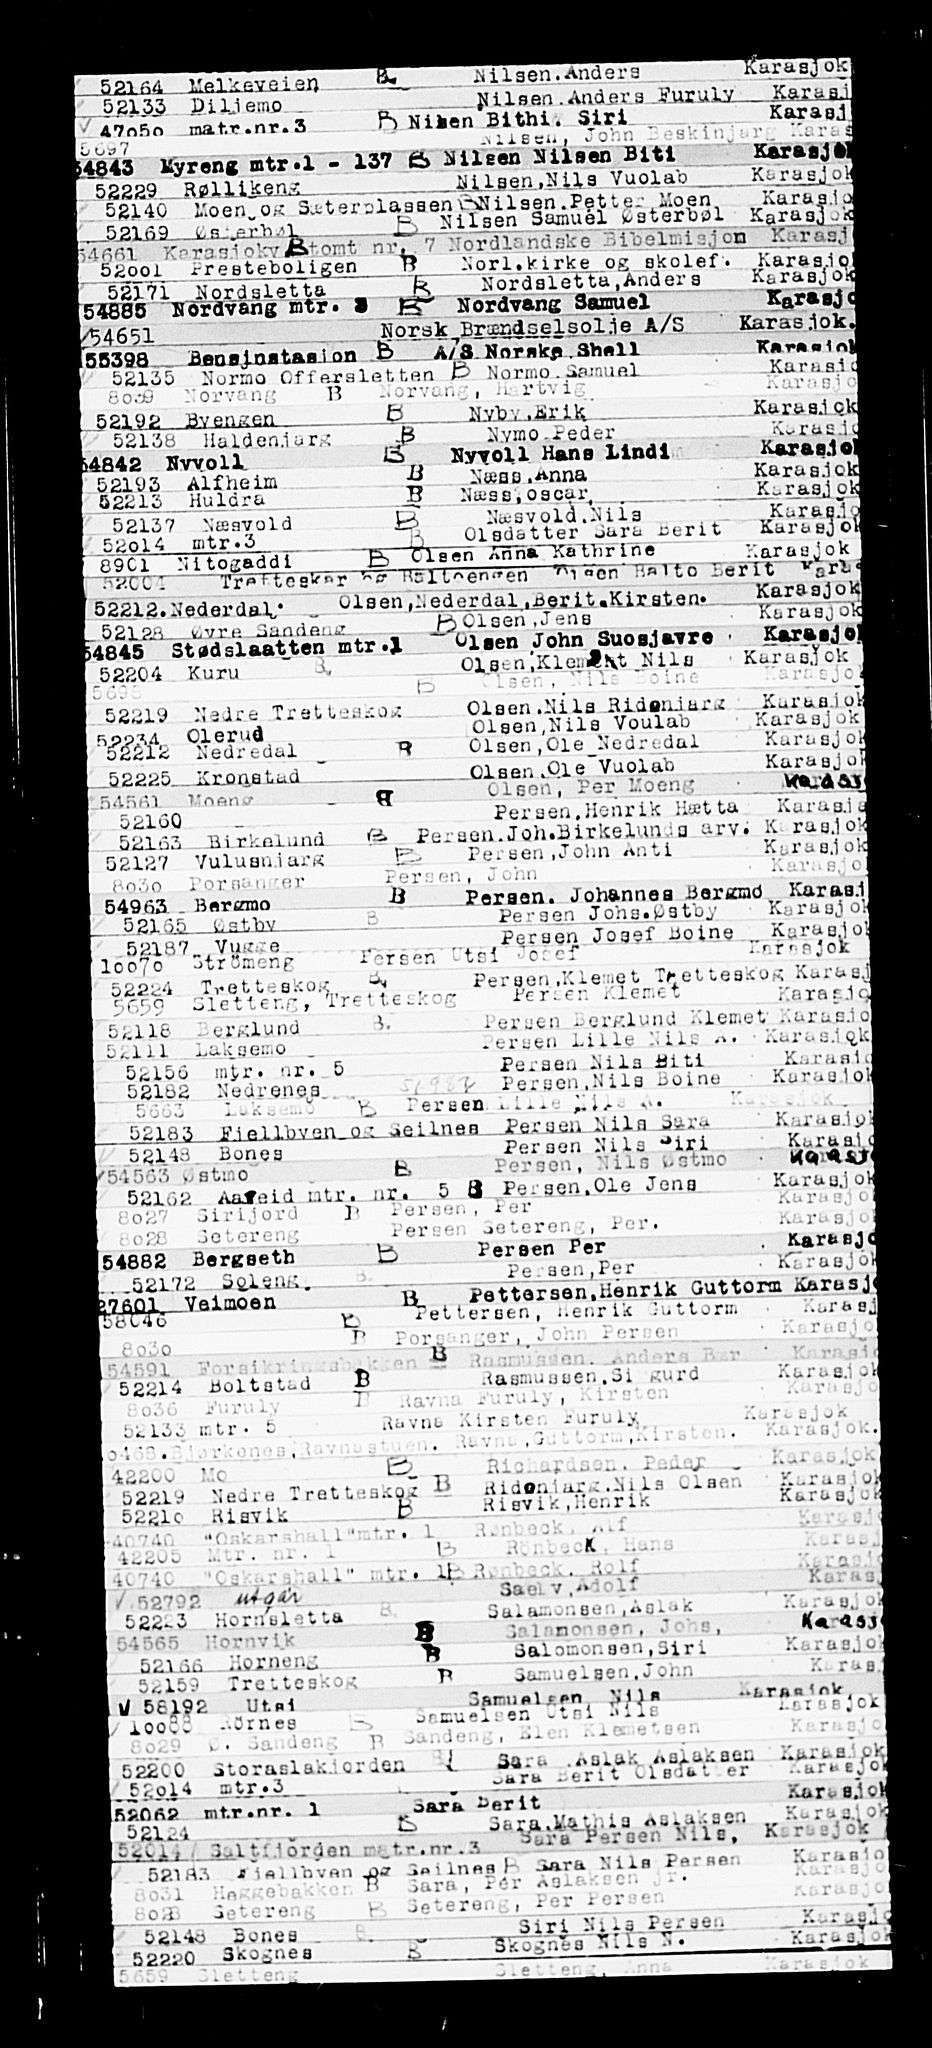 52164 Melkeveien B. Nilsen.Anders Karasjok
52133 Diljemo Nilsen.Anders Furuly Karasj
V 47050 matr.nr.3 B Nilsen Bithi. Siri Karasj
5697 Nilsen, John Beskinjarg Karas
54843 Myreng mtr.1 - 137 B Nilsen Nilsen Biti Karasjok
52229 Røllikeng Nilsen,Nils Vuolab Karasjok
52140 Moen og Sæterplassen B Nilsen.Petter Moen Karasjo
52169 Østerbøl B Nilsen Samuel Østerbøl Karasjok
54661 Karasjokv B tomt nr. 7 Nordlandske Bibelmisjon Karasj
52001 Presteboligen B Norl.kirke og skolef. Karasjo
52171 Nordsletta B Nordsletta,Anders Karasjok
54885 Nordvang mtr. 3 B Nordvang Samuel Karasjo
54651 Norsk Brændselsolje A/S Karasjok.
55398 Bensinstasion B A/S Norske Shell Karasjok
52135 Normo Offersletten B Normo.Samuel Karasjo
8039 Norvang B Norvang, Hartvig Karasjo
52192 Byengen B Nyby.Erik Karasjok
52138 Haldenjarg B Nymo Peder Karasjo
54842 Nyvoll B Nyvoll Hans Lindi Karasjok
52193 Alfheim B Næss.Anna Karasjok
52213 Huldra B Næss,oscar, Karasjok
52137 Næsvold B Næsvold.Nils Karasjo
52014 mtr.3 B Olsdatter Sara Berit Karasjok
8901 Nitogaddi B Olsen Anna Kathrine Karasjok
52004 Tretteskor og Baltoengen Olsen Balto Berit Karas
52212.Nederdal. Olsen,Nederdal,Berit.Kirsten. Karasjok
52128 Øvre Sandeng B Olsen,Jens Karasjok
54845 Stødslaatten mtr.1 Olsen John Suosjavre Karasjo
52204 Kuru B. Olsen,Klemet Nils Karasjok
5695 B Olsen, Nils Boine Karasjo
52219 Nedre Tretteskog Olsen.Nils Ridenjarg Karasjok
52234 Olerud Olsen,Nils Voulab Karasjok
52212 Nedredal B Olsen,Ole Nedredal Karasjok
52225 Kronstad Olsen.Ole Vuolab Karasjok
54561 Moeng B Olsen, Per Moeng Karasj
52160 Persen,Henrik Hætta Karasja
52163 Birkelund B Persen.Joh.Birkelunds arv. Karasjok
52127 Vulusnjarg B Persen,John Anti Karasjok
8030 Porsanger Persen, John Karasjo
54963 Bergmo B Persen. Johannes Bergmo Karasj
52165 Østby B Persen Johs.Østby Karasjok
52187 Vugge Persen Josef Boine Karasjok
10070 Strömeng Persen Utsi Josef Karasjok
52224 Tretteskog B. Persen,Klemet Tretteskog Karasj
5659 Sletteng, Tretteskog Persen Klemet Karasjo
52118 Berglund B. Persen Berglund Klemet Karasjo
52111 Laksemo Persen Lille Nils A. Karasjok
52156 mtr. nr. 5 Persen Nils Biti Karasjo
52182 Nedrenes Persen,Nils Boine Karasjok
5663 Laksemo B Persen Lille Nils A. Karasjok
52183 Fjellbyen og Seilnes Persen Nils Sara Karasjok
52148 Bones Persen Nils Siri Karasjo
54563 Østmo B Persen, Nils Østmo Karasj
52162 Aareid mtr. nr. 5 B Persen.Ole Jens Karasjok
8027 Sirijord B Persen, Per Karasjo
8028 Setereng Persen Setereng, Per. Karasjo
54882 Bergseth B Persen Per Karasjo
52172 Soleng B. Persen,Per Karasjok
27601 Veimoen B Pettersen,Henrik Guttorm Karasj
58046 B Pettersen, Henrik Guttorm Karasj
8030 B Porsanger, John Persen Karasjo
54591 Forsikringsbakken B Rasmussen. Anders Bær Karasjo
52214 Boltstad B Rasmussen.Sigurd Karasjok
8036 Furuly B Ravna Furuly, Kirsten Karasjo
52133 mtr. 5 Ravna Kirsten Furuly Karasjok
0468.Bjørkenes,Ravnastuen. Ravna,Guttorm,Kirsten. Karasjok.
42200 Mo B Richardsen. Peder Karasjok
52219 Nedre Tretteskog B Ridenjarg.Nils Olsen Karasjok
52210 Risvik B Risvik,Henrik Karasjok
40740 "Oskarshall"mtr. 1 Rønbeck. Alf Karasj
42205 Mtr. nr. 1 B Rönbeck, Hans Karasj
40740 "Oskarshall" mtr. 1 B Rønbeck. Rolf Karasj
V 52792 utgår Sælv,Adolf Karasj
52223 Hornsletta B. Salamonsen,Aslak Karasjok
54565 Hornvik B Salamonsen, Johs, Karasj
52166 Horneng B Salomonsen,Siri Karasjok
52159 Tretteskog B Samuelsen,John Karas
V 58192 Utsi Samuelsen Nils Karasjok
10088 Rörnes B Samuelsen Utsi Nils Karasjok
8029 Ø. Sandeng B Sandeng, Elen Klemetsen Karasjo
52200 Storaslakjorden Sara Aslak Aslaksen Karasjok
52014 mtr.3 Sara Berit Olsdatter Karasjok
52062 mtr.nr. 1 Sara Berit Karasjok
52124 B Sara.Mathis Aslaksen Karasjok
52014 Saltfjörden matr.nr.3 Sara Persen Nils, Karasjok
52183 Fjellbyen og Seilnes B Sara Nils Persen Karasjo
8031 Heggebakken B Sara, Per Aslaksen jr. Karasjo
8028 Setereng B Setereng, Per Persen Karasjo
52148 Bones B. Siri Nils Persen Karasjo
52220 Skognes B Skognes Nils N. Karasjok
5659 Sletteng Sletteng, Anna Karasjok